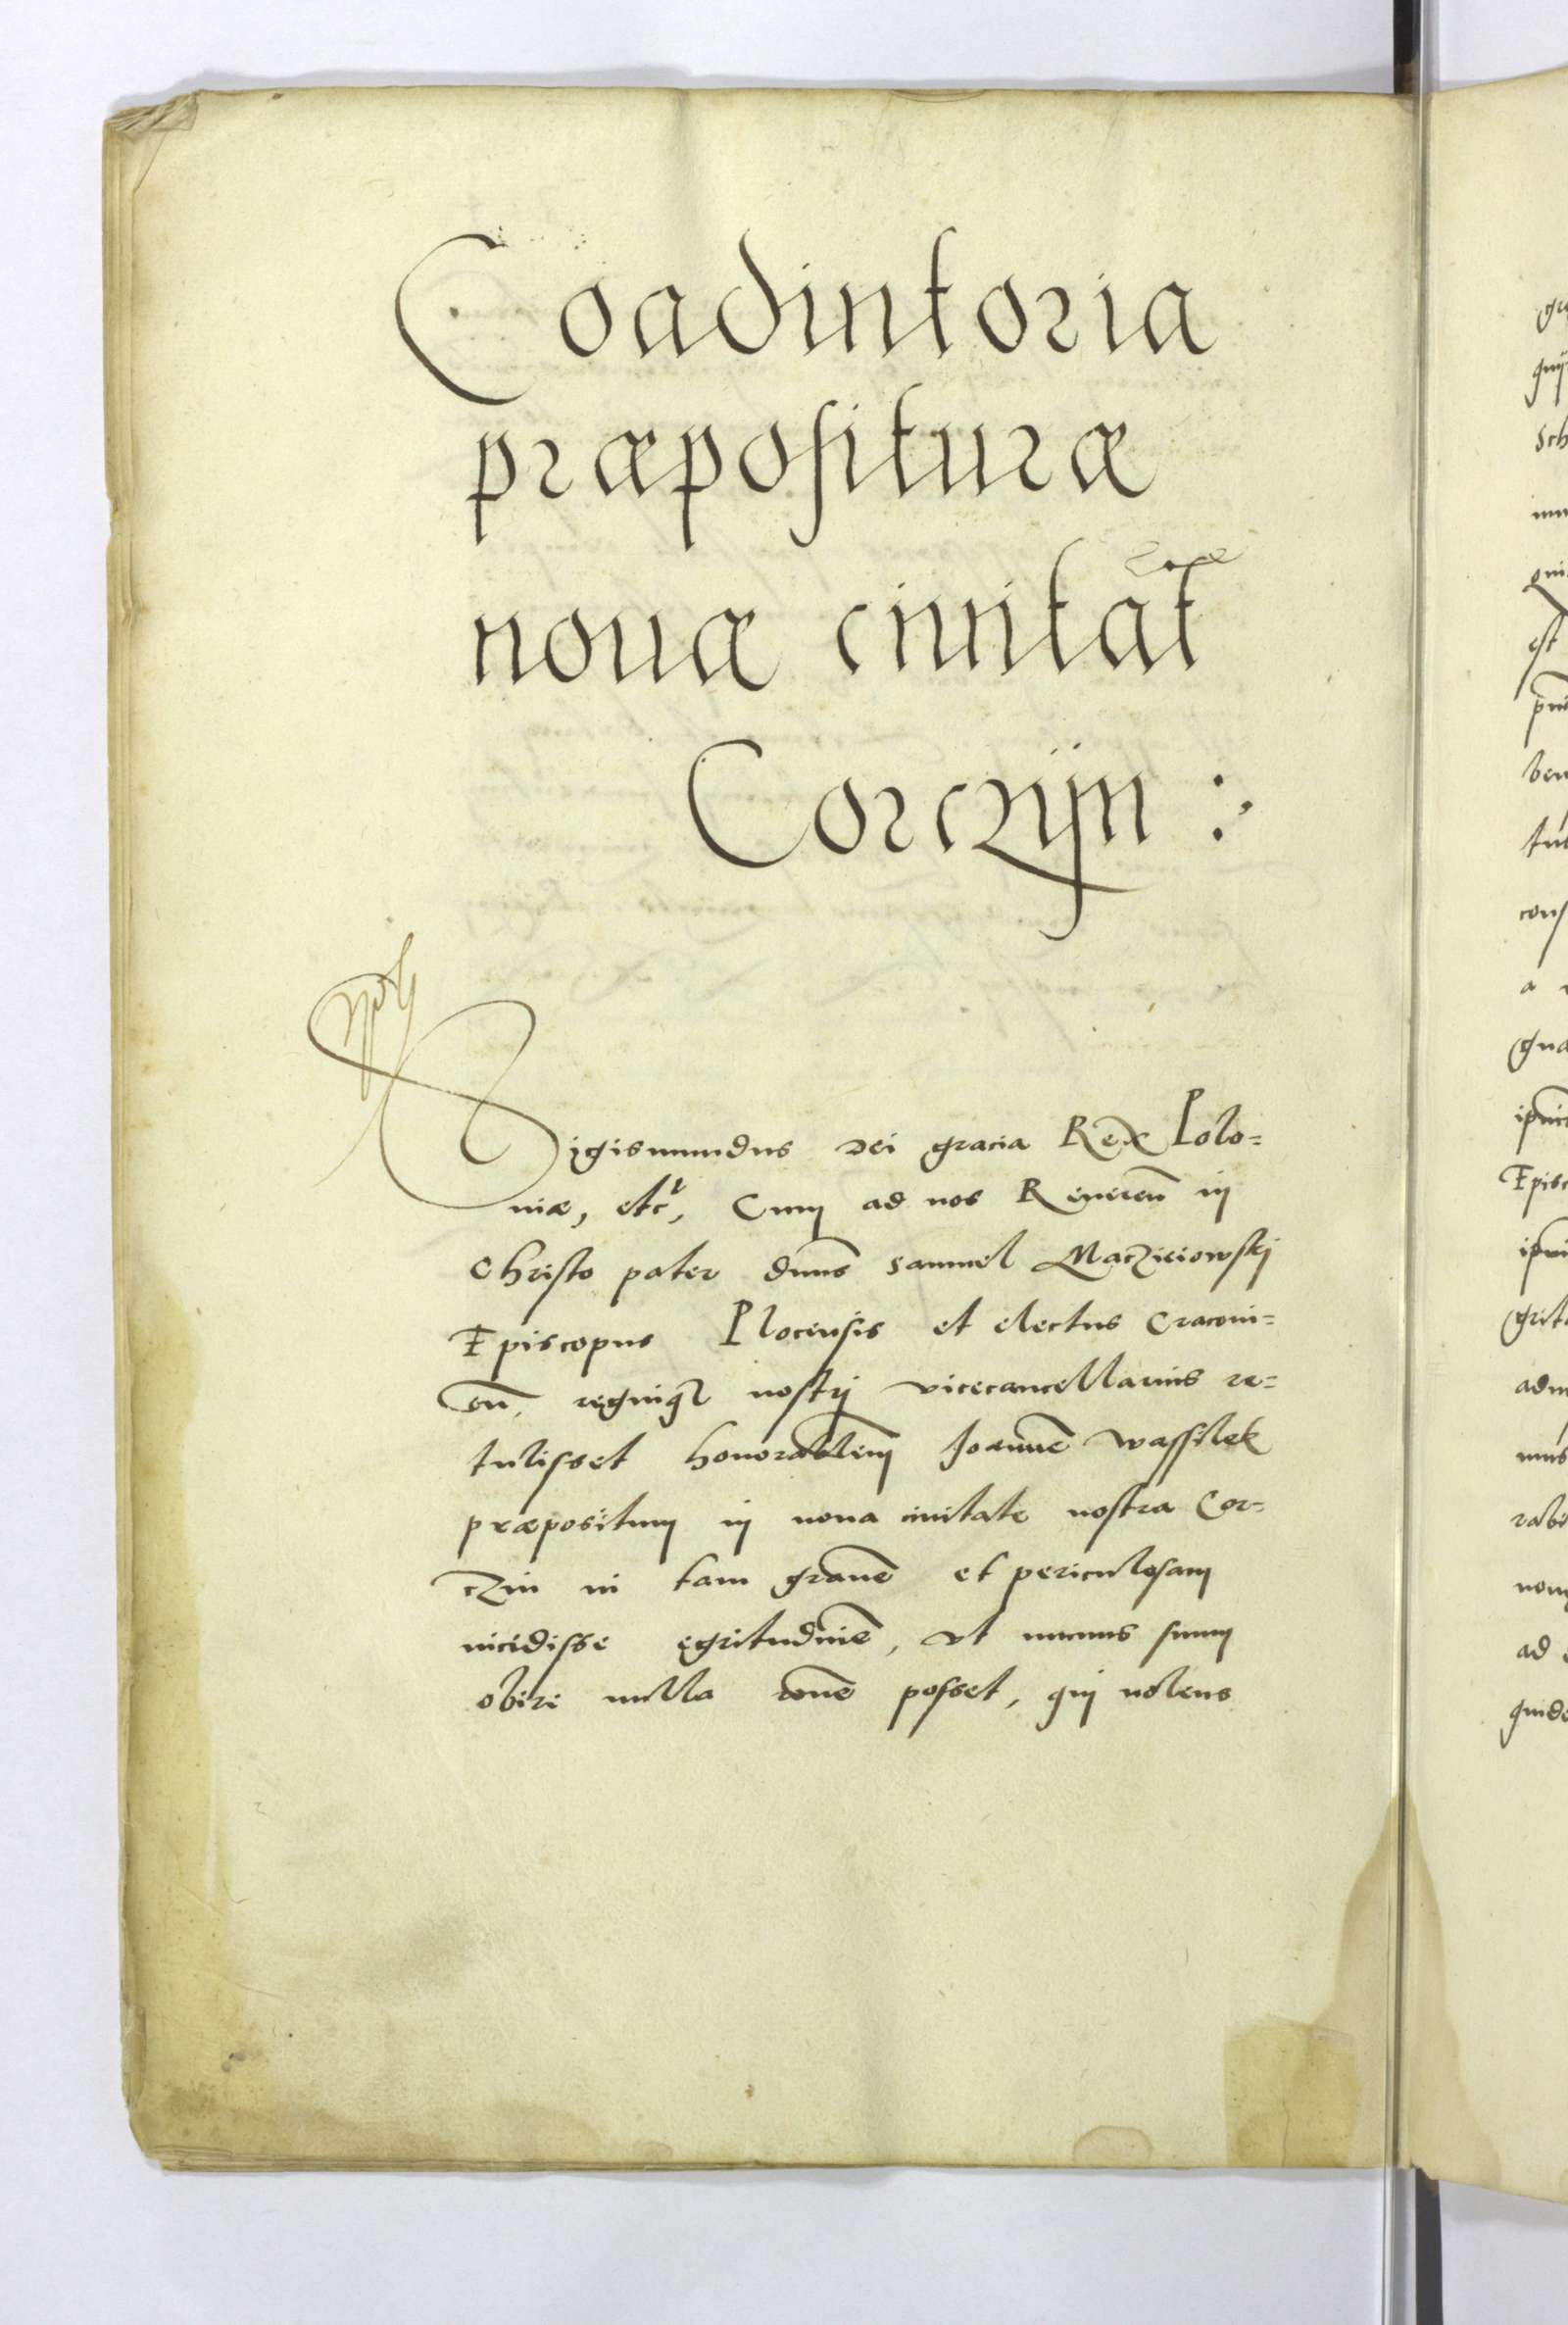 Coadiutoria
præpositura
nouæ ciuitat̃
Corczÿn :
Sigismundus Dei gracia Rex Polo=
niæ, etc̃, Cum ad nos Reueren̄ in
Christo pater dn̄us Samuel Maczieiowskj
Episcopus Plocensis et electus Cracoui=
en̄. regniq₃ nostrj vicecancellarius re=
tulisset honorabilem Joannē Wassilek
præpositum in noua ciuitate nostra Cor=
czin in tam grauē et periculosam
incidisse ęgritudinē, vt munus suum
obire nulla rōne posset, quj uolens